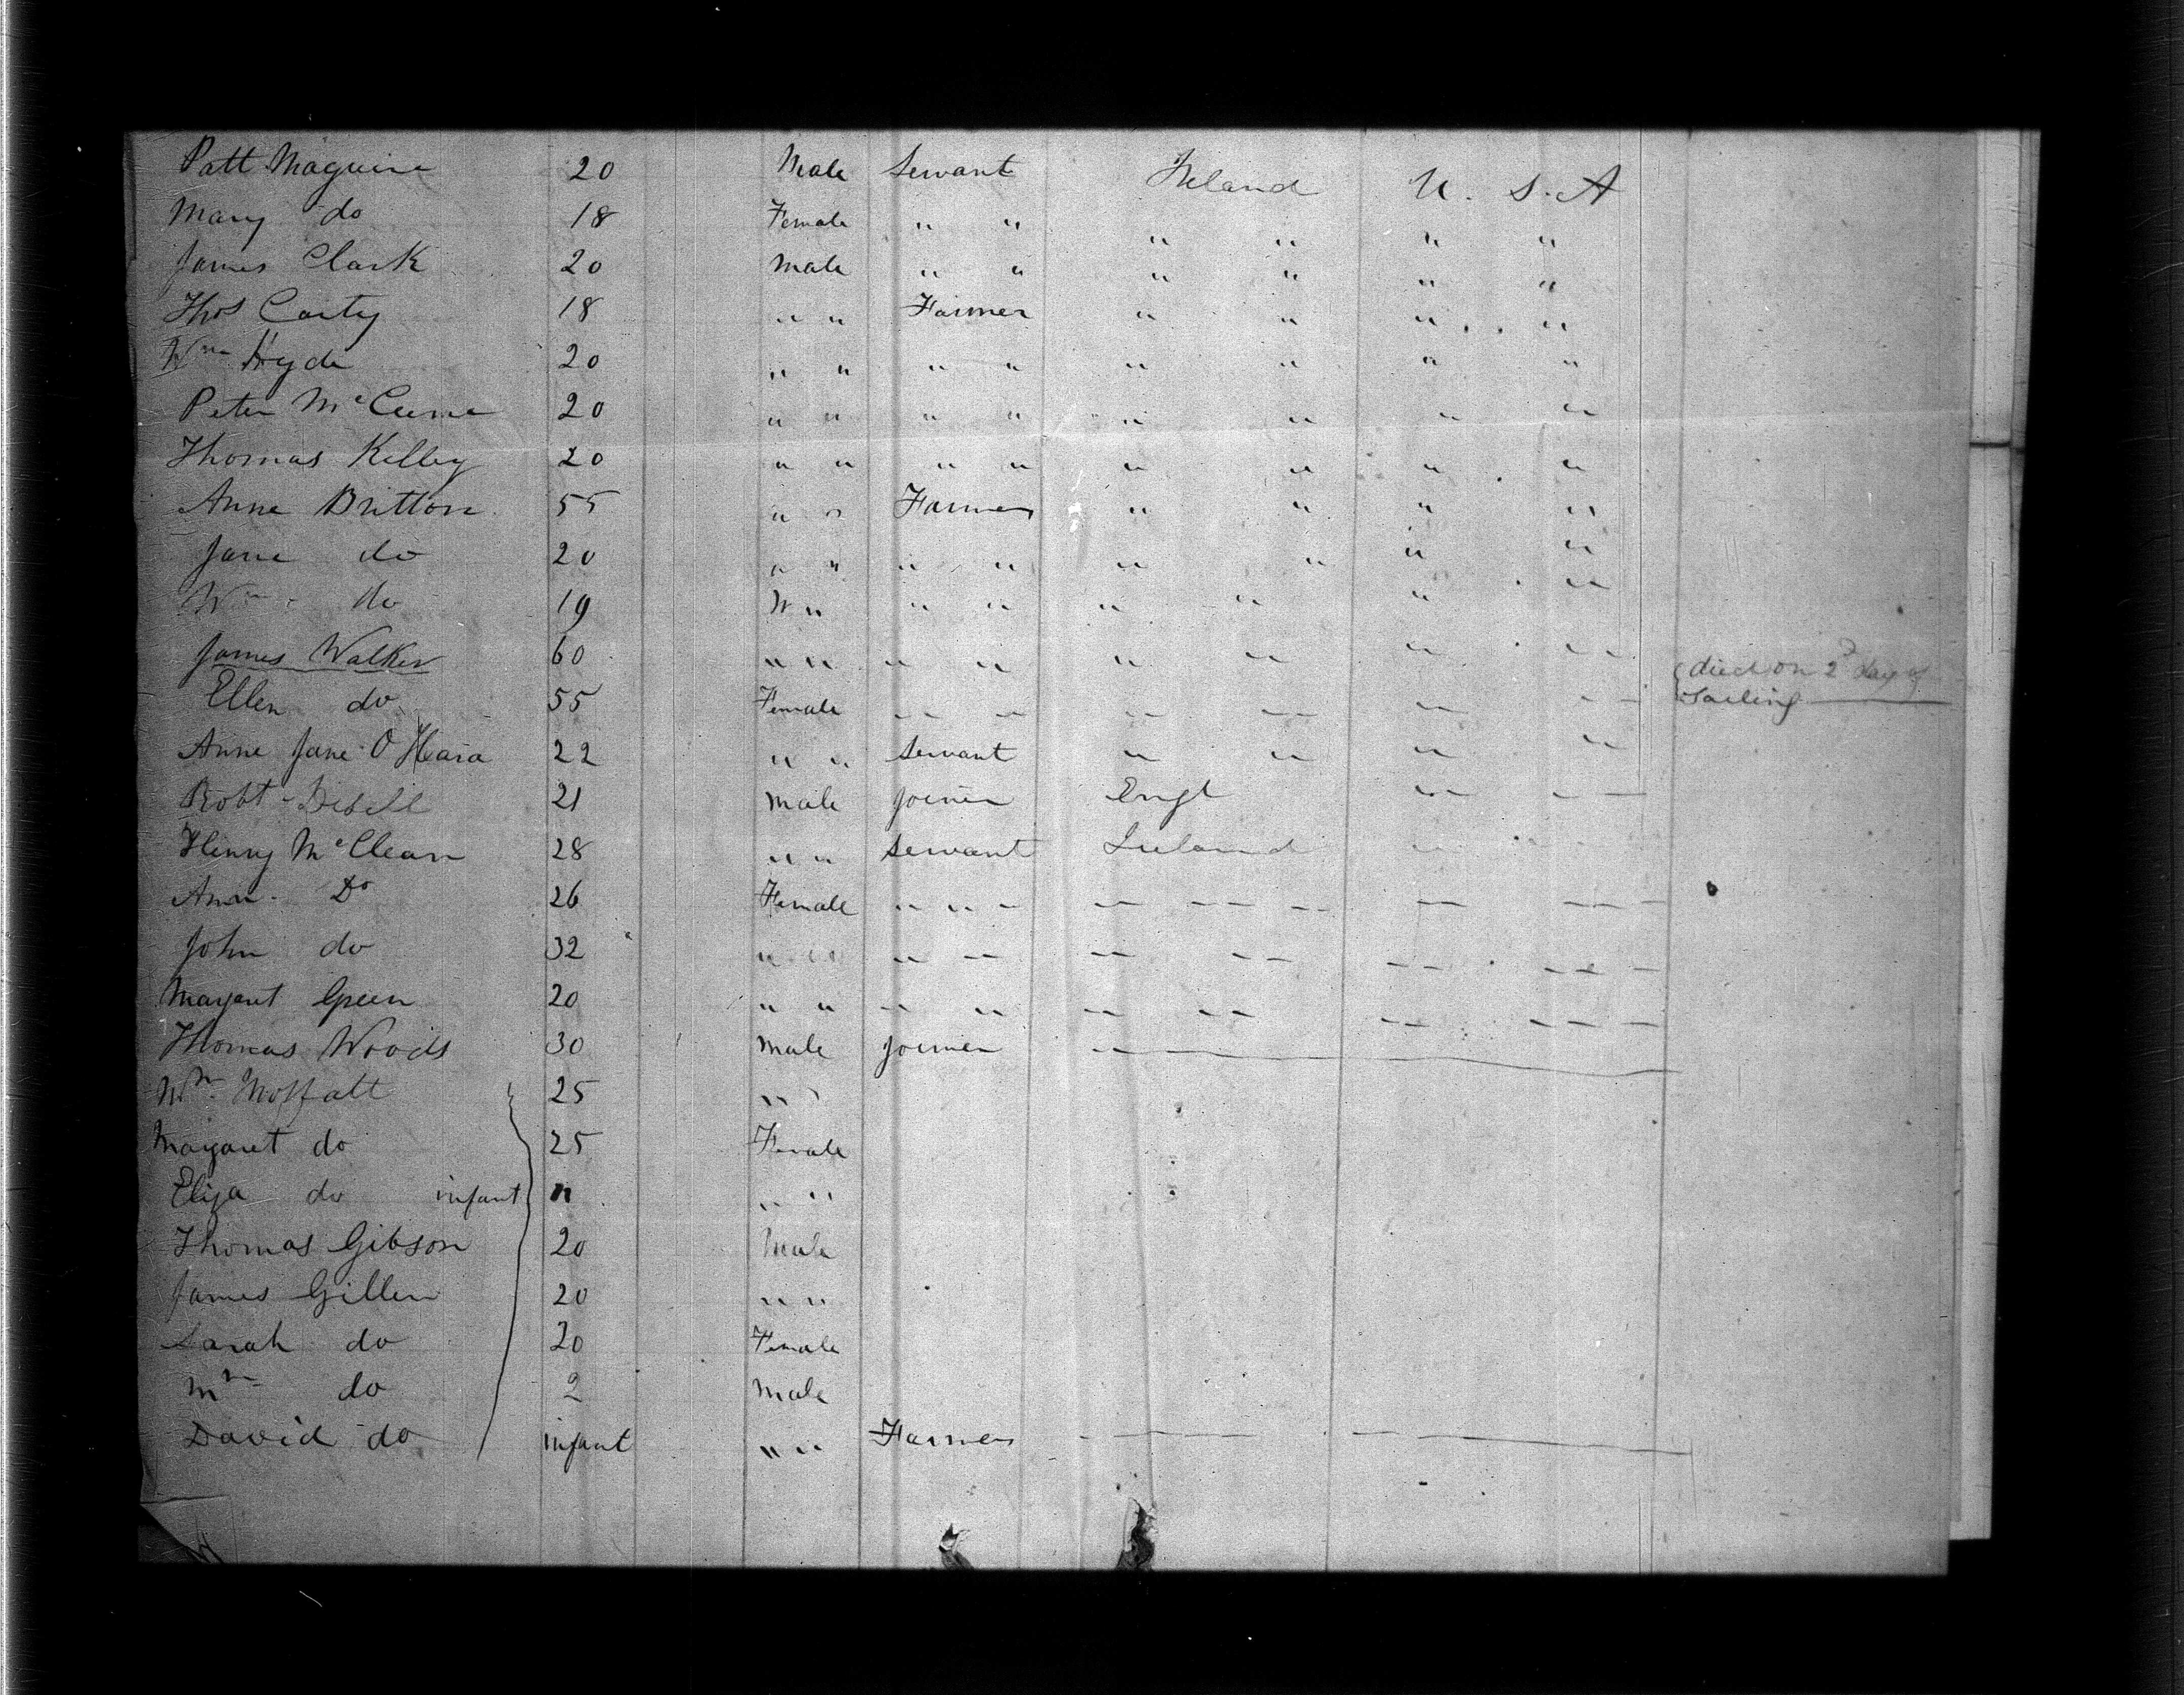 Patt Maguire 20 Male Servant Ireland U. S. A
Mary do 18 Female " " " " " "
James Clark 20 Male " " " " " "
Thos Carty 18 " " Farmer " " " "
Wm Hyde 20 " " " " " " " "
Peter McCume 20 " " " " " " " "
Thomas Kelley 20 " " " " " " " "
Anne Britton 55 " " Farmer " " " "
Jane do 20 " " " " " " " "
Wm do 19 " " " " " " " "
James Walker 60 " " " " " " " " died on 2d day of
Ellen do 55 Female " " " " " " Sailing
Anne Jane O Hara 22 " " Servant " " " "
Robt 21 Male Joiner Engl " "
Henry McClean 28 " " Servant Ireland "
Ann Do 26 Female " " " " " "
John do 32 " " " " " " " "
Margaret Green 20 " " " " " " " "
Thomas Woods 30 Male Joiner "
Wm Moffatt 25 " "
Margaret do 25 Female
Eliza do infant n " "
Thomas Gibson 20 Male
James Gillen 20 " "
Sarah do 20 Female
Wm do 2 Male
David do infant " " Farmer